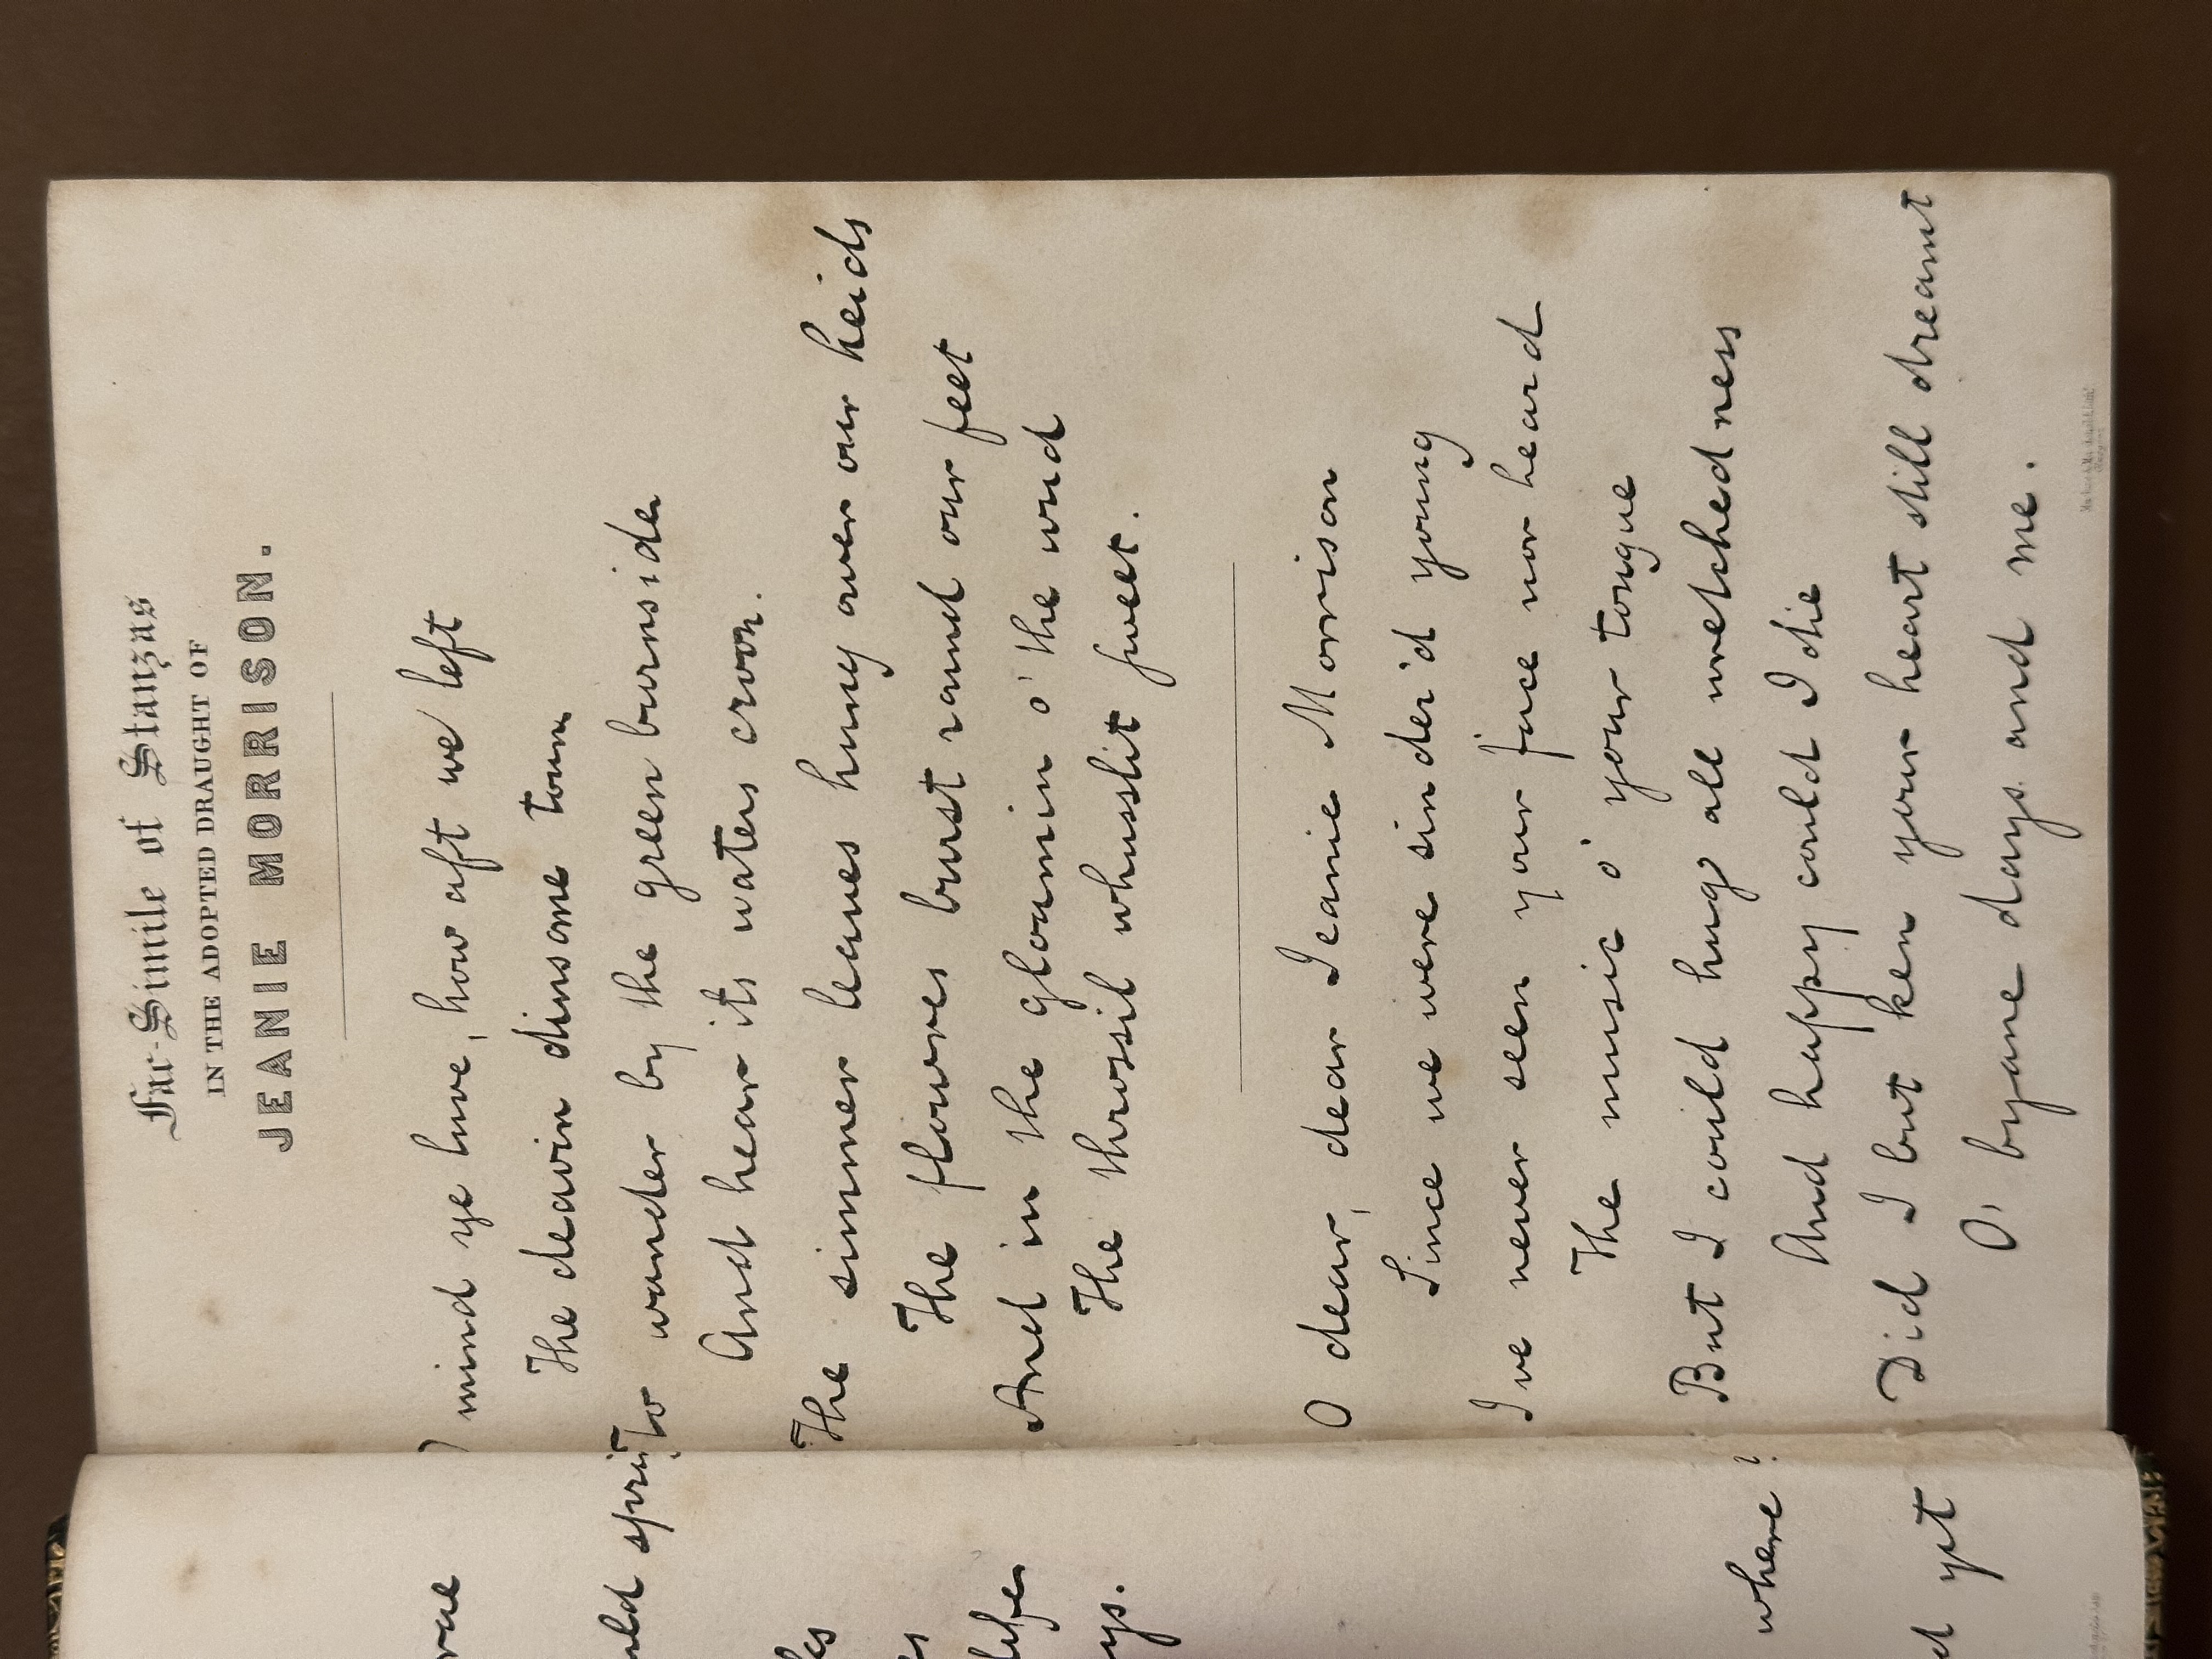 Fac-Simile of Stanzas
IN THE ADOPTED DRAUGHT OF
JEANIE MORRISON.
I mind ye luve, how aft we left
The deavin dinsome toun
To wander by the green burnside
And hear its waters croon.
The simmer leaves hung over our heids
The flowres burst round our feet
And in the gloamin o' the wud
The throssil whusslit sweet.
O dear, dear Jeanie Morison
Since we were sinder'd young
I ve never seen your face nor heard
The music o' your tongue
But I could hug all wretchedness
And happy could I die
Did I but ken your heart still dreamt
O, bygane days and me.
rae
spri
lifes
ys.
where?
yet